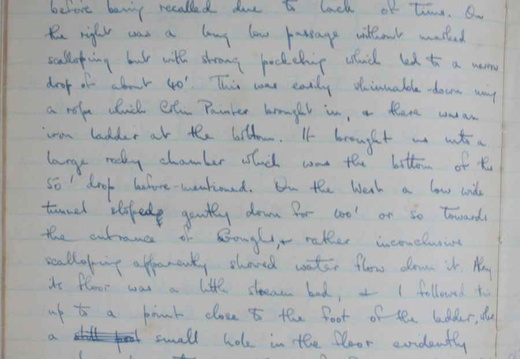 before being recalled due to lack of time. On
the right was a long low passage without marked
scalloping but with strong pocketing which led to a narrow
drop of about 40'. This was easily shinnable down using
a rope which Colin Painter brought in, & there was an
iron ladder at the bottom. It brought us into a
large rocky chamber which was the bottom of the
50' drop before-mentioned. On the West a low wide
tunnel sloped gently down for 100' or so towards
the entrance of & rather inconclusive
scalloping apparently showed water flow down it. Along
its floor was a little stream bed, & I followed this
up to a point close to the foot of the ladder, where
a small hole in the floor evidently